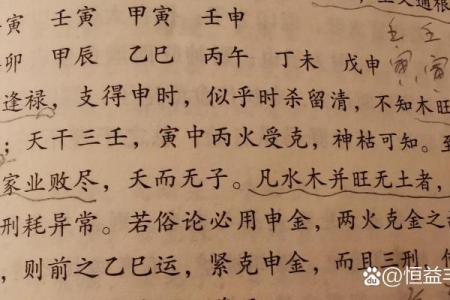 寅 壬寅 甲寅 壬申
卯 甲辰 乙巳 丙午 丁未 戊申
逢禄，支得申时，似乎时杀留清，不知木旺
；天干三壬，寅中丙火受克，神枯可知。至
家业败尽，夭而无子。凡水木并旺无土者，
刑耗异常。若俗论必用申金，两火克金之故
，则前之乙巳运，紧克申金，而且三刑，
壬 壬
寅 寅
Baidu百科 恒益丰